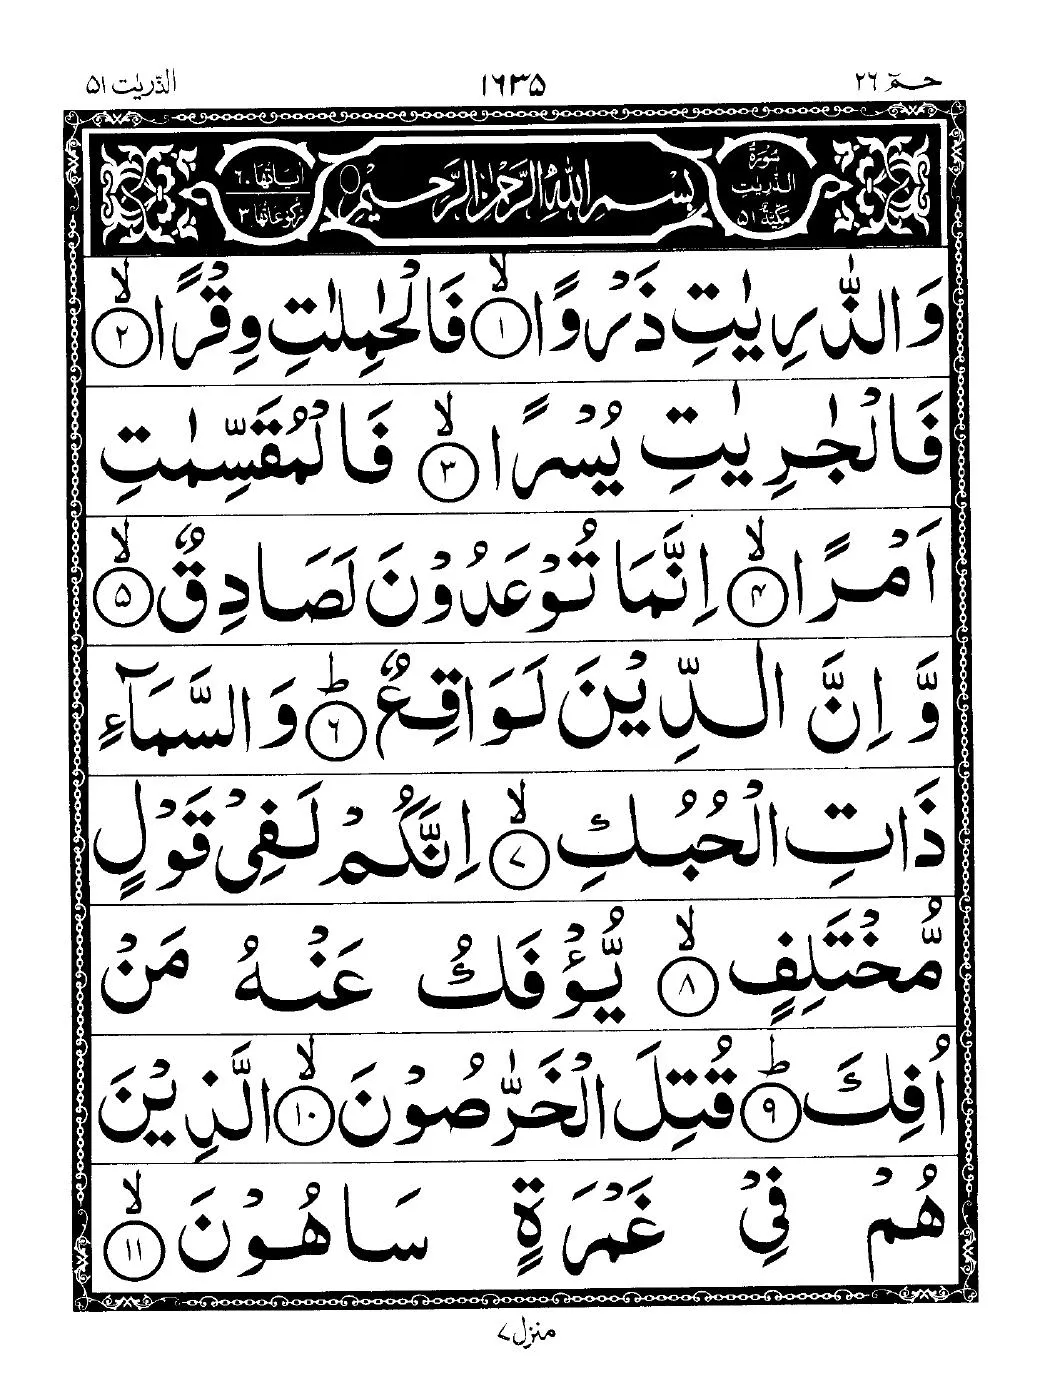 حٰمٓ ٢٦
١٦٣٥
الذّٰریٰت ٥١
سُوْرَةُ
الذّٰرِیٰتِ
مَکِّیَّةٌ ٥١
بِسْمِ اللّٰهِ الرَّحْمٰنِ الرَّحِیْمِ
اٰیَاتُهَا ٦٠
رُکُوْعَاتُهَا ٣
وَالذّٰرِیٰتِ ذَرْوًا ۙ﴿١﴾ فَالْحٰمِلٰتِ وِقْرًا ۙ﴿٢﴾
فَالْجٰرِیٰتِ یُسْرًا ۙ﴿٣﴾ فَالْمُقَسِّمٰتِ
اَمْرًا ۙ﴿٤﴾ اِنَّمَا تُوْعَدُوْنَ لَصَادِقٌ ۙ﴿٥﴾
وَّ اِنَّ الدِّیْنَ لَوَاقِعٌ ؕ﴿٦﴾ وَالسَّمَآءِ
ذَاتِ الْحُبُكِ ۙ﴿٧﴾ اِنَّکُمْ لَفِیْ قَوْلٍ
مُّخْتَلِفٍ ۙ﴿٨﴾ یُّؤْفَكُ عَنْهُ مَنْ
اُفِكَ ؕ﴿٩﴾ قُتِلَ الْخَرّٰصُوْنَ ۙ﴿١٠﴾ الَّذِیْنَ
هُمْ فِیْ غَمْرَةٍ سَاهُوْنَ ۙ﴿١١﴾
منزل ٧